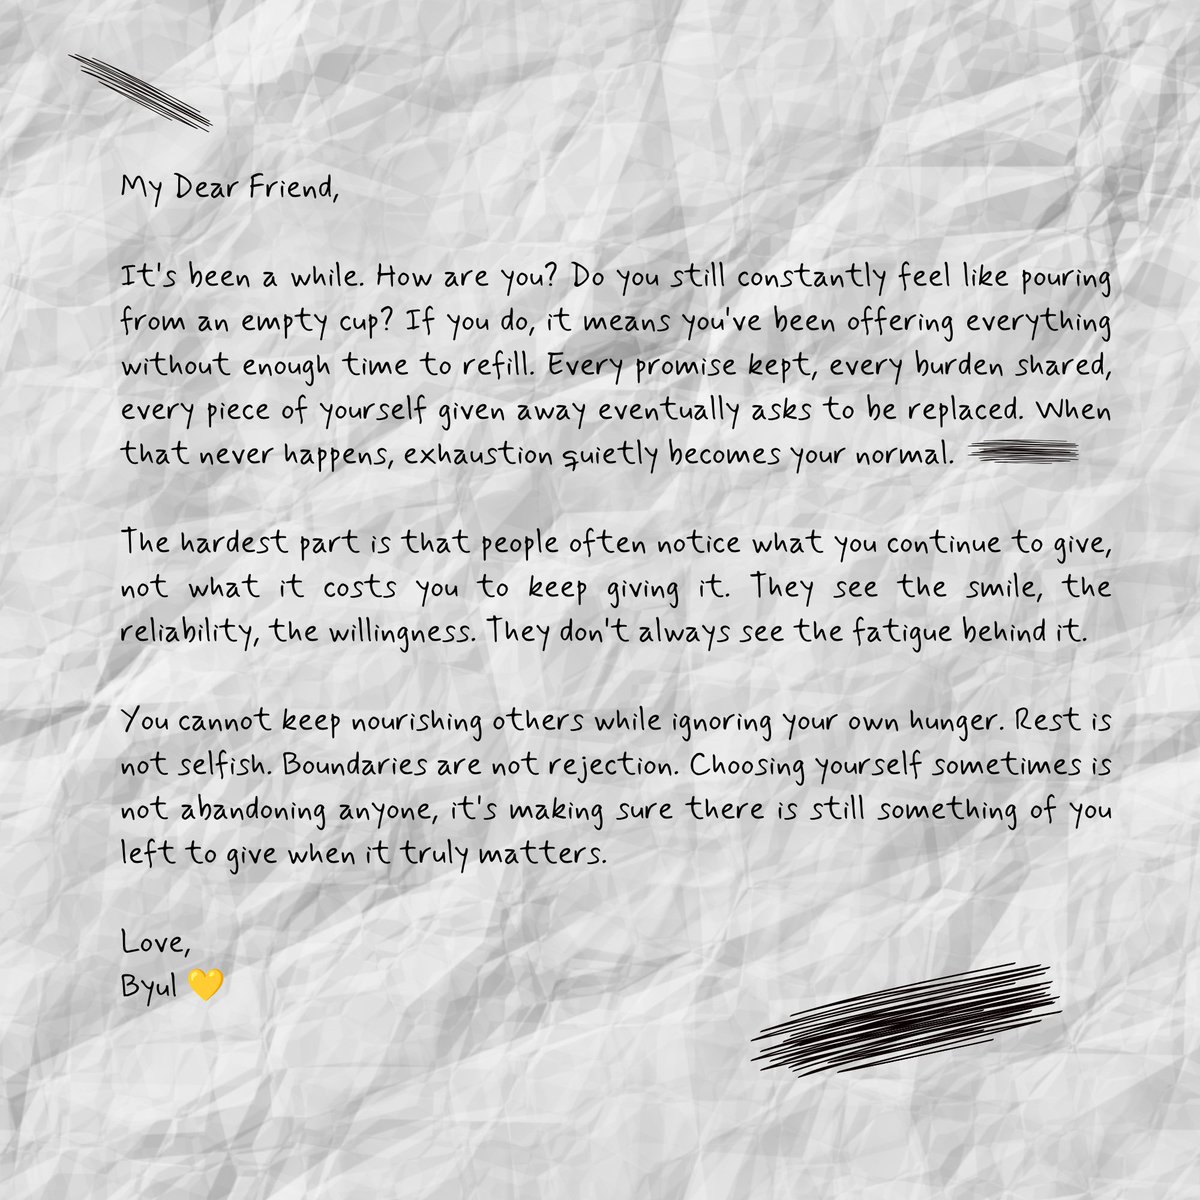 My Dear Friend,
It's been a while. How are you? Do you still constantly feel like pouring
from an empty cup? If you do, it means you've been offering everything
without enough time to refill. Every promise kept, every burden shared,
every piece of yourself given away eventually asks to be replaced. When
that never happens, exhaustion quietly becomes your normal.
The hardest part is that people often notice what you continue to give,
not what it costs you to keep giving it. They see the smile, the
reliability, the willingness. They don't always see the fatigue behind it.
You cannot keep nourishing others while ignoring your own hunger. Rest is
not selfish. Boundaries are not rejection. Choosing yourself sometimes is
not abandoning anyone, it's making sure there is still something of you
left to give when it truly matters.
Love,
Byul 💛